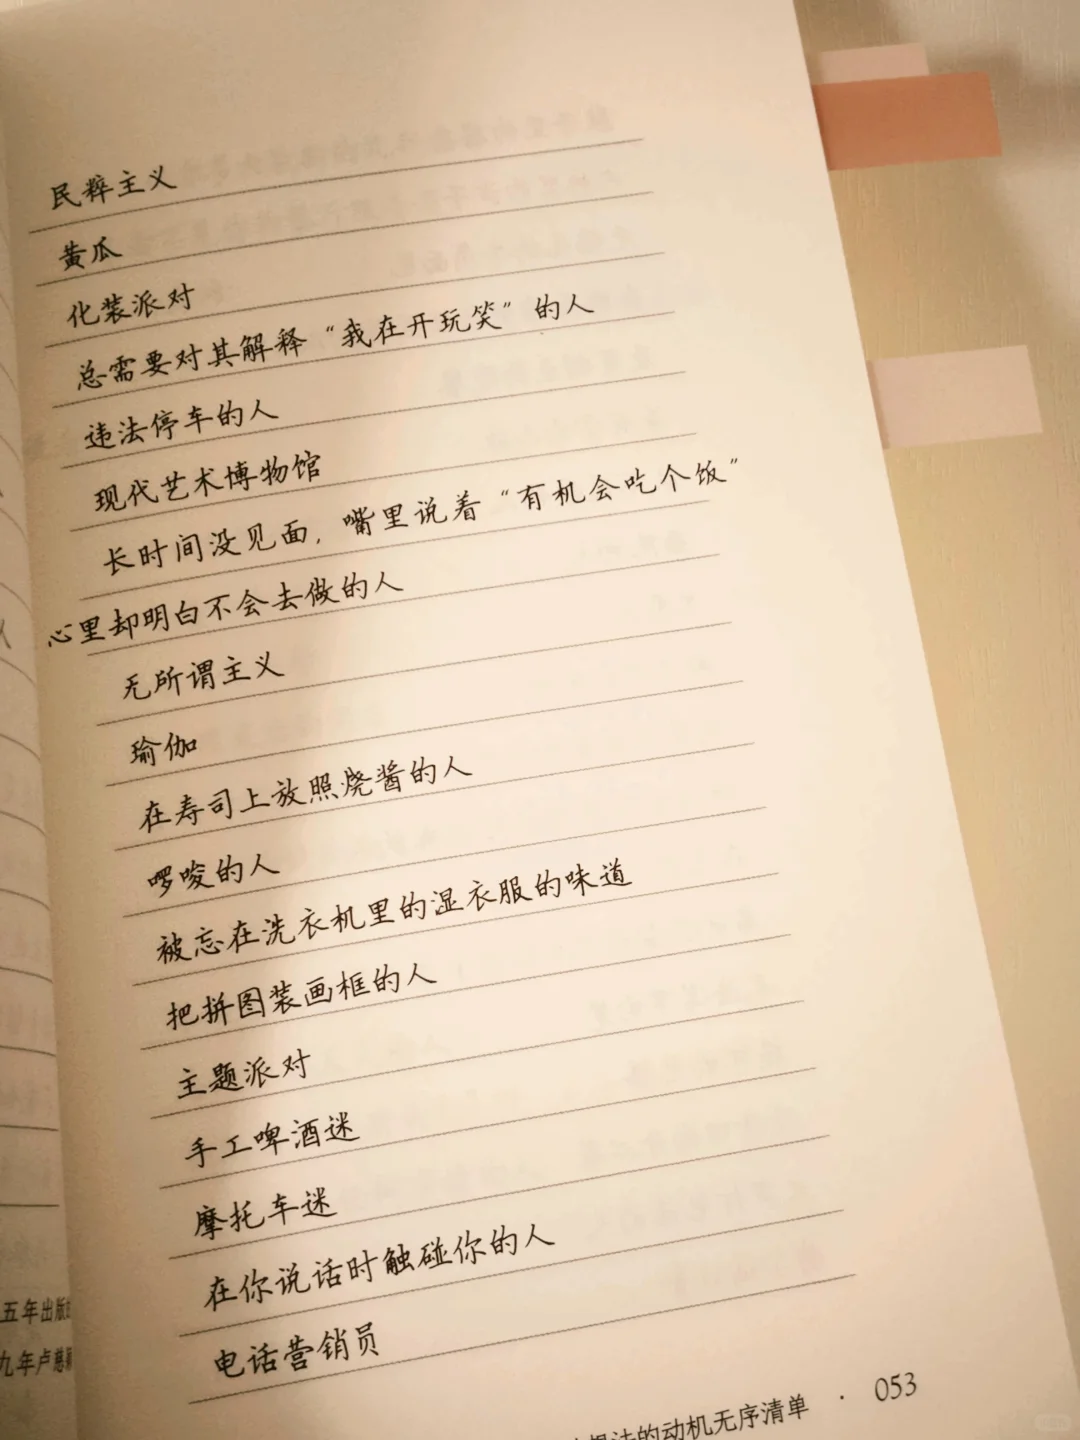 民粹主义
黄瓜
化装派对
总需要对其解释“我在开玩笑”的人
违法停车的人
现代艺术博物馆
长时间没见面，嘴里说着“有机会吃个饭”
心里却明白不会去做的人
无所谓主义
瑜伽
在寿司上放照烧酱的人
啰唆的人
被忘在洗衣机里的湿衣服的味道
把拼图装画框的人
主题派对
手工啤酒迷
摩托车迷
在你说话时触碰你的人
电话营销员
五年出版
九年卢慈
法的动机无序清单 · 053